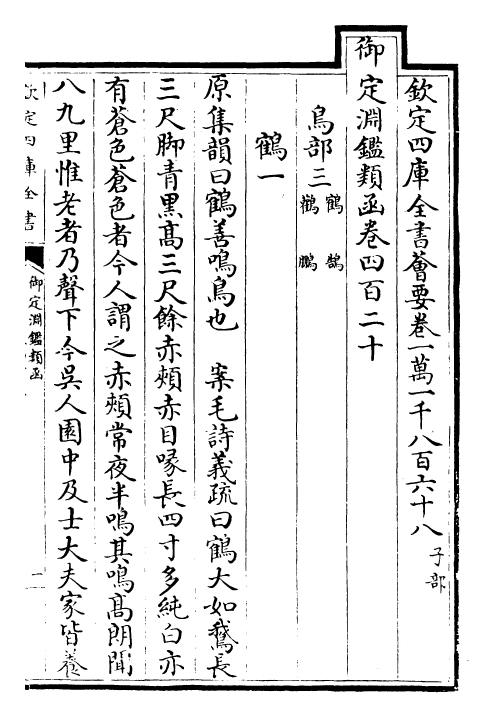 欽定四庫全書薈要卷一萬一千八百六十八 子部
御定淵鑑類函卷四百二十
鳥部三 鶴 鵠 鸛 鵬
鶴一
原集韻曰鶴善鳴鳥也 案毛詩義疏曰鶴大如鵞長
三尺脚青黑髙三尺餘赤頰赤目喙長四寸多純白亦
有蒼色蒼色者今人謂之赤頰常夜半鳴其鳴髙朗聞
八九里惟老者乃聲下今吳人園中及士大夫家皆養
欽定四庫全書
御定淵鑑類函
一